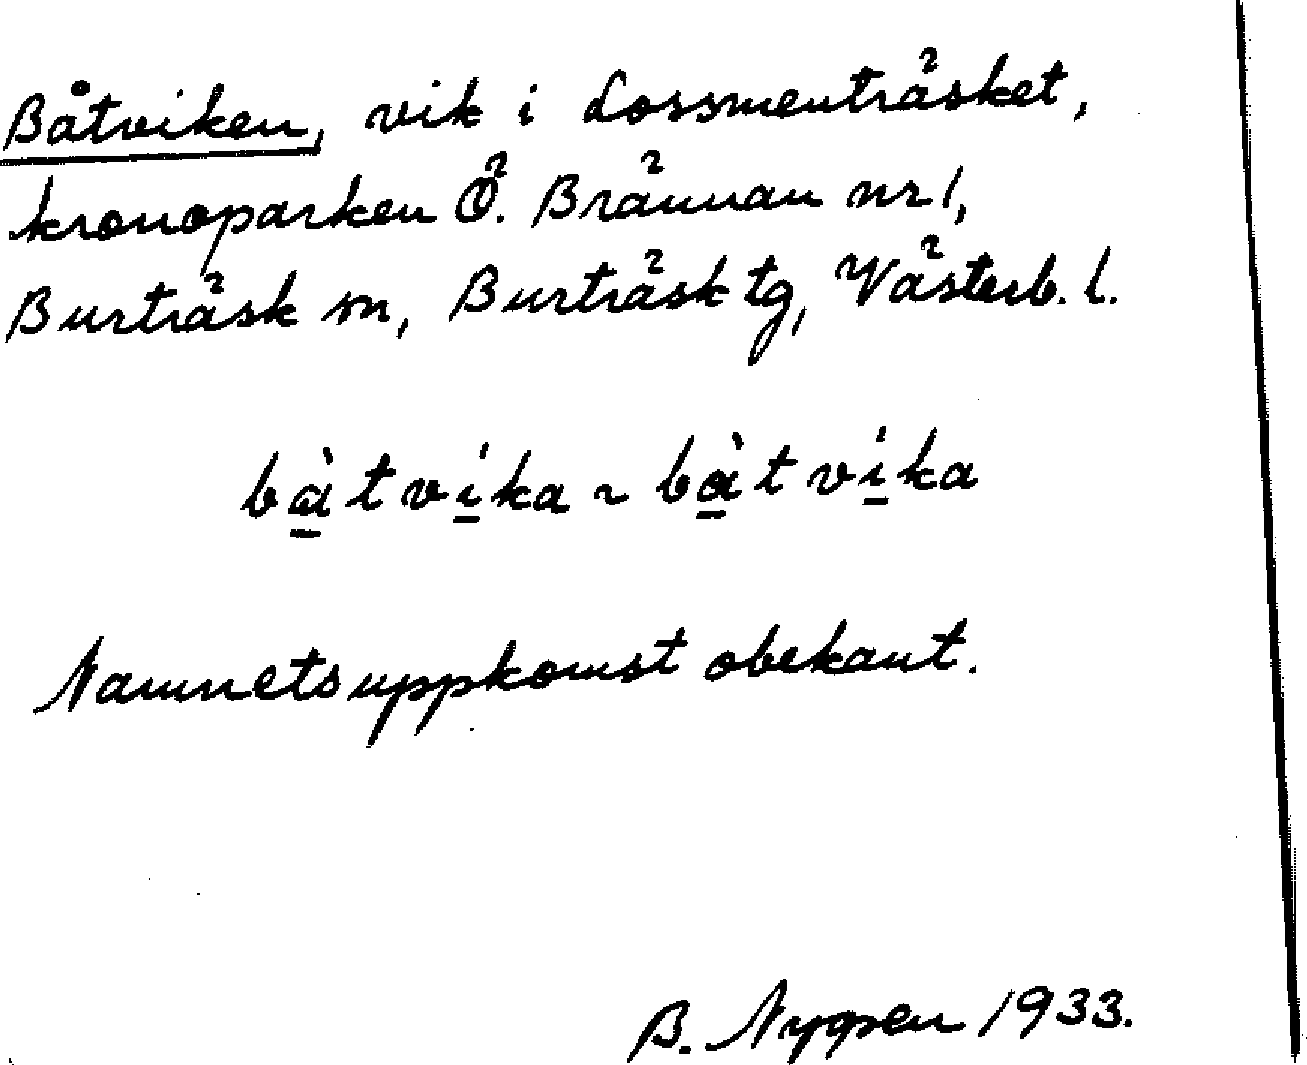 Båtviken, vik i Lossmenträsket,
kronoparken Ö. Brännan nr 1,
Burträsk sn, Burträsk tg, Västerb. l.
bàtvíka ~ bàtvíka
Namnets uppkomst obekant.
B. Nygren 1933.